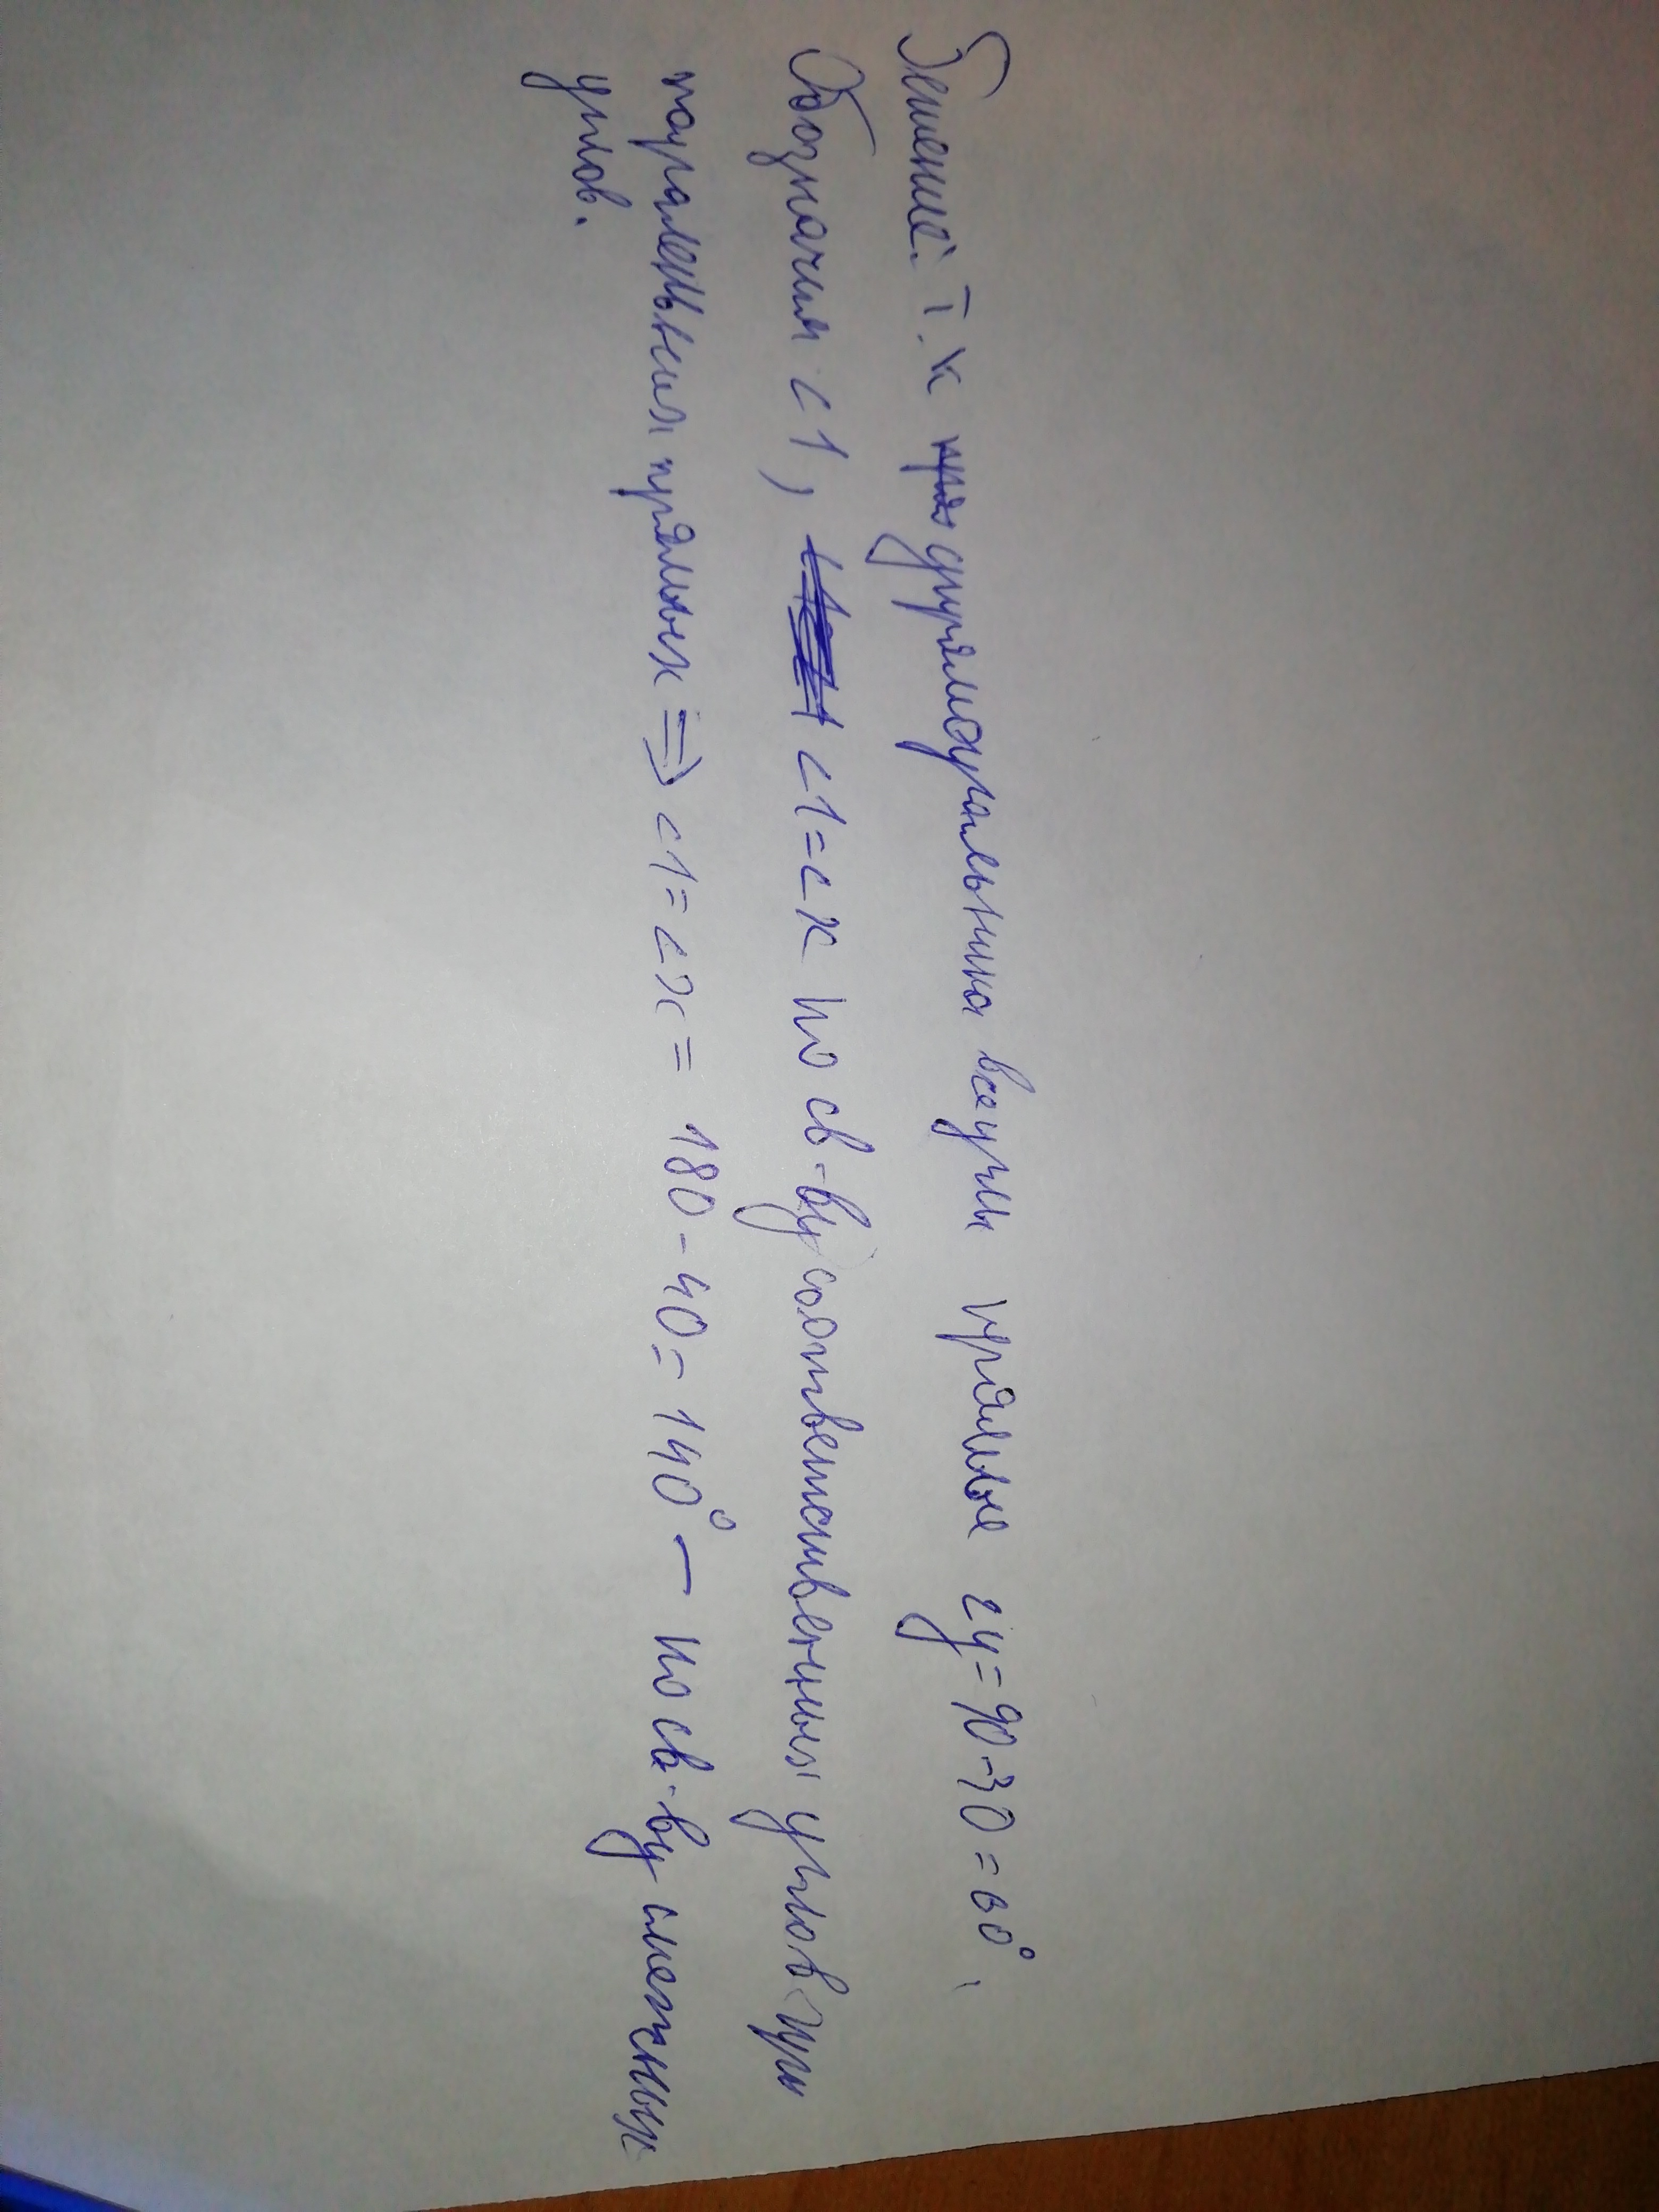 Решение: Т.к у прямоугольника все углы прямые <y=90-30=60°.
Обозначим <1, <1=<x по св-ву соответственных углов при
паралельных прямых => <1=<x= 180-40=140° - по св-ву смежных
углов.